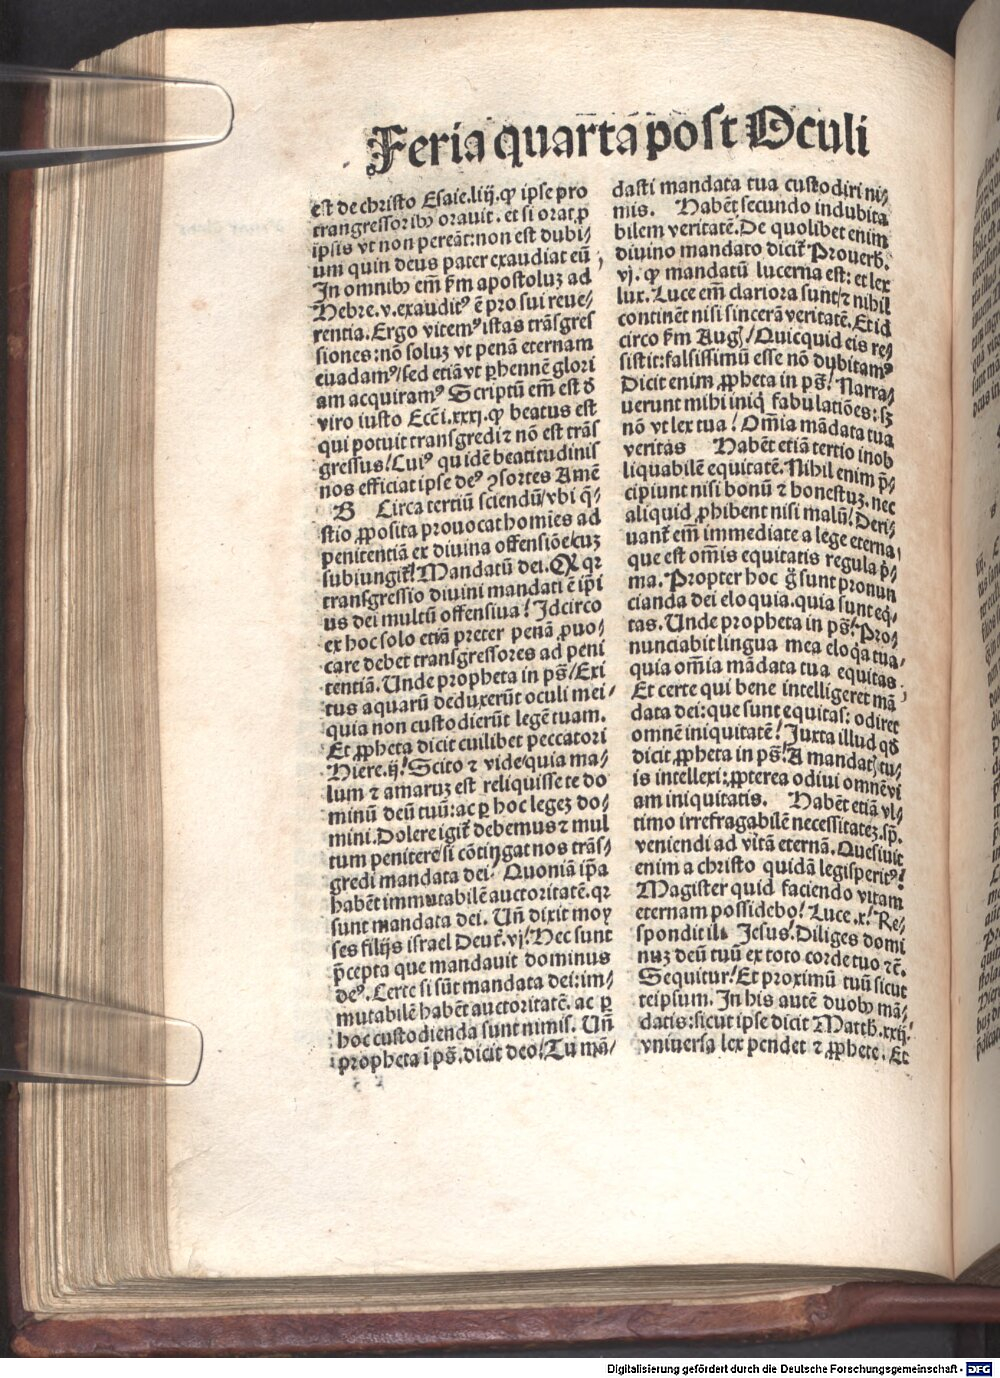 Feria quar̄ta post Oculi
est de christo Esaie.liij. ꝙ ipse pro
trangressoribꝰ orauit. et si orat ꝓ
ipsis vt non pereāt: non est dubi⸗
um quin deus pater exaudiat eū
In omnibꝰ em̄ ẜm apostoluꝫ ad
Hebre.v. exauditꝰ ē pro sui reue⸗
rentia. Ergo vitemꝰ istas trāsgres
siones: nō soluꝫ vt penā eternam
euadamꝰ/ sed etiā vt ꝑhennē glori
am acquiramꝰ Scriptū em̄ est ð
viro iusto Eccī.xxxj. ꝙ beatus est
qui potuit transgredi ⁊ nō est trās
gressus/ Cuiꝰ quidē beatitudinis
nos efficiat ipse deꝰ ꝯsortes Amē
B Circa tertiū sciendū/ vbi q̄⸗
stio ꝓposita prouocat homīes ad
penitentiā ex diuina offensiōe/ cuꝫ
subiungit̄/ Mandatū dei. Qꝛ qꝛ
transgressio diuini mandati ē ip̄i
us dei multū offensiua/ Idcirco
ex hoc solo etiā preter penā ꝓuo⸗
care debet transgressores ad peni
tentiā. Unde propheta in pš/ Exi
tus aquarū deduxerūt oculi mei⸗
quia non custodierūt legē tuam.
Et ꝓpheta dicit cuilibet peccatori
Hiere.ij/ Scito ⁊ vide/ quia ma⸗
lum ⁊ amaruꝫ est reliquisse te do
minū deū tuū: ac ꝑ hoc legeꝫ do⸗
mini. Dolere igit̄ debemus ⁊ mul
tum penitere/ si cōtīgat nos trās⸗
gredi mandata dei. Quoniā ip̄a
habēt immutabilē auctoritatē. qꝛ
sunt mandata dei. Un̄ dixit moy
ses filijs israel Deut̄.vj/ Hec sunt
p̄cepta que mandauit dominus
deꝰ. Certe si sūt mandata dei: im⸗
mutabilē habēt auctoritatē. ac ꝑ
hoc custodienda sunt nimis. Un̄
propheta ī pš. dicit deo/ Tu mā⸗
dasti mandata tua custodiri ni⸗
mis. Habēt secundo indubita
bilem veritatē. De quolibet enim
diuino mandato dicit̄ Prouerb.
vj. ꝙ mandatū lucerna est: et lex
lux. Luce em̄ clariora sunt/ ⁊ nihil
continēt nisi sincerā veritatē. Et id
circo ẜm Aug/ Quicquid eis re⸗
sistit: falsissimū esse nō dubitamꝰ
Dicit enim ꝓpheta in pš/ Narra⸗
uerunt mihi iniq̄ fabulatiōes: sꝫ
nō vt lex tua/ Om̄ia mādata tua
veritas Habēt etiā tertio inob
liquabilē equitatē. Nihil enim p̄⸗
cipiunt nisi bonū ⁊ honestuꝫ. nec
aliquid ꝓhibent nisi malū/ Deri⸗
uant̄ em̄ immediate a lege eterna
que est om̄is equitatis regula p̄⸗
ma. Propter hoc g̊ sunt pronun
cianda dei eloquia. quia sunt eq̄⸗
tas. Unde propheta in pš/ Pro⸗
nunciabit lingua mea eloq̄a tua⸗
quia om̄ia mādata tua equitas
Et certe qui bene intelligeret mā
data dei: que sunt equitas: odiret
omnē iniquitatē/ Iuxta illud qð
dicit ꝓpheta in pš/ A mandatꝭ tu⸗
is intellexi: ꝓpterea odiui omnē vi
am iniquitatis. Habēt etiā vl⸗
timo irrefragabilē necessitateꝫ. sꝑ.
veniendi ad vitā eternā. Quesiuit
enim a christo quidā legisperitꝰ/
Magister quid faciendo vitam
eternam possidebo/ Luce.x/ Re⸗
spondit illi Jesus/ Diliges domi
nuꝫ deū tuū ex toto corde tuo ⁊c̄.
Sequitur/ Et proximū tuū sicut
teipsum. In his autē duobꝰ mā⸗
datis: sicut ipse dicit Matth.xxij.
vniuersa lex pendet ⁊ ꝓphete. Et
Digitalisierung gefördert durch die Deutsche Forschungsgemeinschaft - DFG